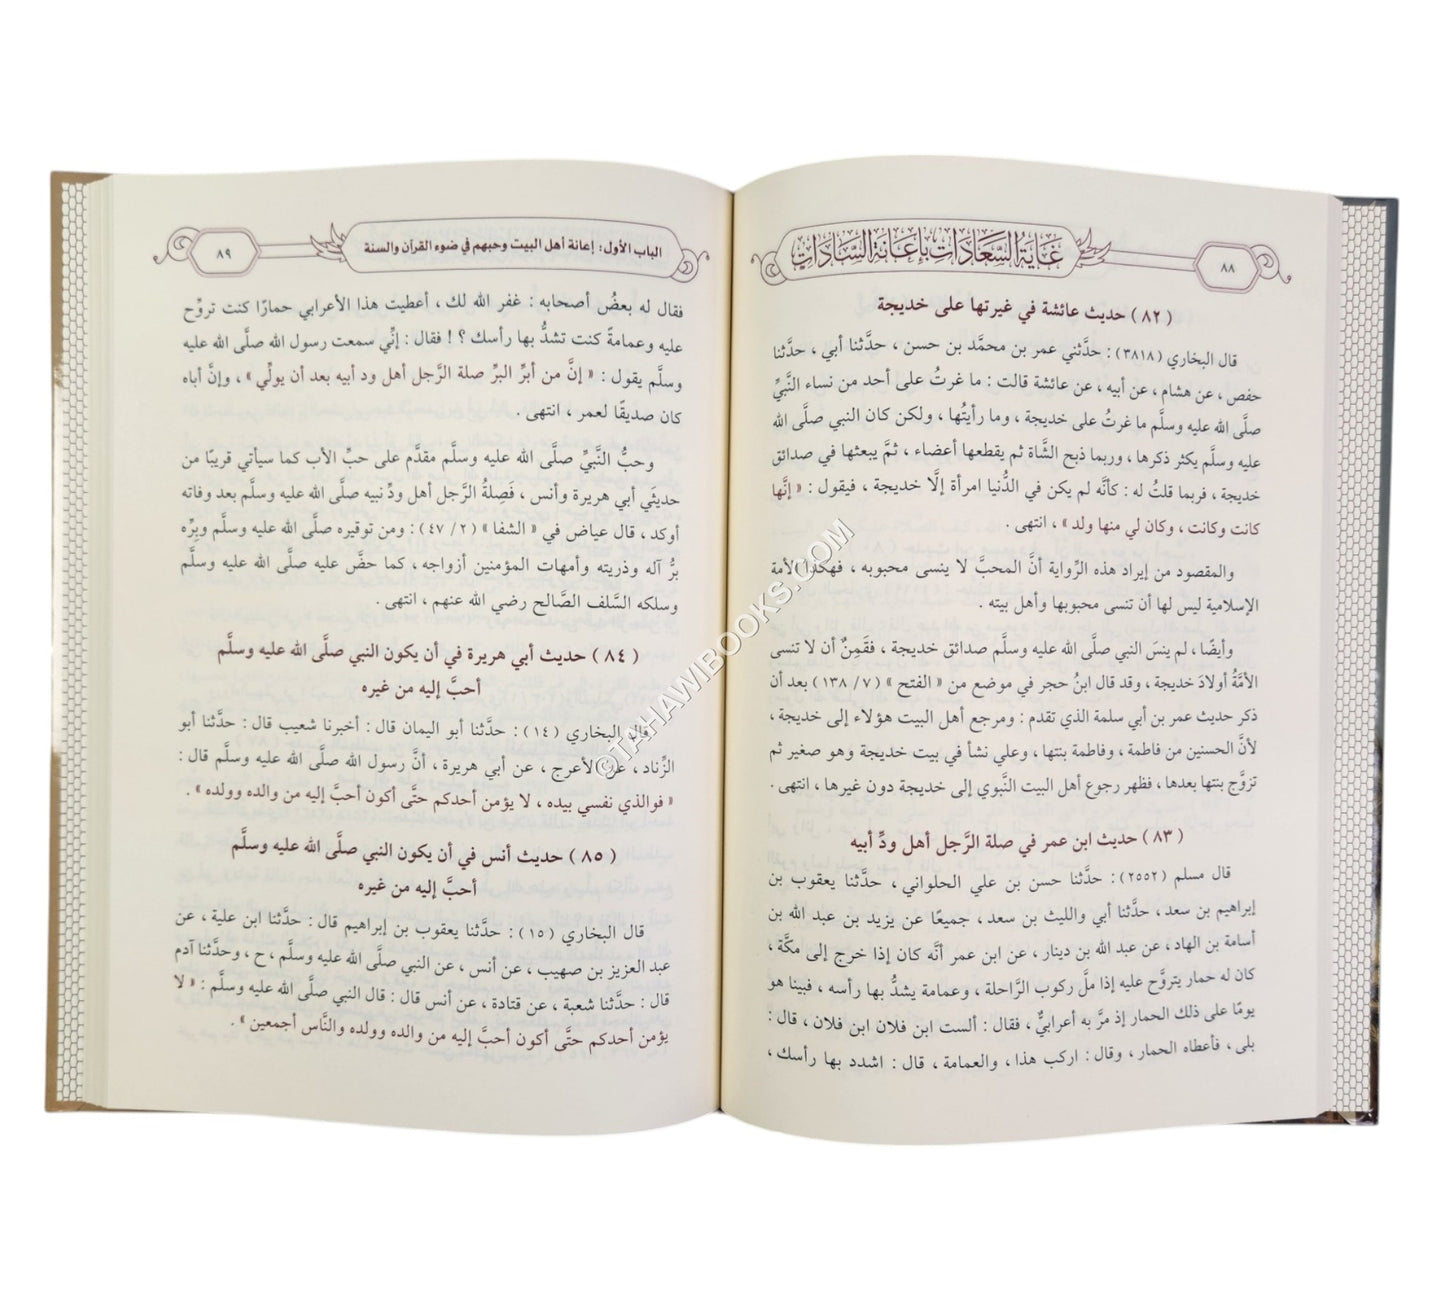 ٨٨
غاية السعادات بإعانة السادات
( ٨٢ ) حديث عائشة في غيرتها على خديجة
قال البخاري (٣٨١٨) : حدَّثني عمر بن محمَّد بن حسن ، حدَّثنا أبي ، حدَّثنا
حفص ، عن هشام ، عن أبيه ، عن عائشة قالت : ما غرتُ على أحد من نساء النَّبيِّ
صلَّى الله عليه وسلَّم ما غرتُ على خديجة ، وما رأيتُها ، ولكن كان النبي صلَّى الله
عليه وسلَّم يكثر ذكرها ، وربما ذبح الشَّاة ثم يقطعها أعضاء ، ثمَّ يبعثها في صدائق
خديجة ، فربما قلتُ له : كأنَّه لم يكن في الدُّنيا امرأة إلَّا خديجة ، فيقول : « إنَّها
كانت وكانت ، وكان لي منها ولد » ، انتهى .
والمقصود من إيراد هذه الرِّواية أنَّ المحبَّ لا ينسى محبوبه ، فهكذا الأمة
الإسلامية ليس لها أن تنسى محبوبها وأهل بيته .
وأيضًا ، لم ينسَ النبي صلَّى الله عليه وسلَّم صدائق خديجة ، فقَمِنٌ أن لا تنسى
الأمَّة أولادَ خديجة ، وقد قال ابنُ حجر في موضع من « الفتح » (٧/ ١٣٨) بعد أن
ذكر حديث عمر بن أبي سلمة الذي تقدم : ومرجع أهل البيت هؤلاء إلى خديجة ،
لأنَّ الحسنين من فاطمة ، وفاطمة بنتها ، وعلي نشأ في بيت خديجة وهو صغير ثم
تزوَّج بنتها بعدها ، فظهر رجوع أهل البيت النَّبوي إلى خديجة دون غيرها ، انتهى .
( ٨٣ ) حديث ابن عمر في صلة الرَّجل أهل ودِّ أبيه
قال مسلم (٢٥٥٢) : حدَّثنا حسن بن علي الحلواني ، حدَّثنا يعقوب بن
إبراهيم بن سعد ، حدَّثنا أبي والليث بن سعد ، جميعًا عن يزيد بن عبد الله بن
أسامة بن الهاد ، عن عبد الله بن دينار ، عن ابن عمر أنَّه كان إذا خرج إلى مكَّة ،
كان له حمار يتروَّح عليه إذا ملَّ ركوب الرَّاحلة ، وعمامة يشدُّ بها رأسه ، فبينا هو
يومًا على ذلك الحمار إذ مرَّ به أعرابيٌّ ، فقال : ألست ابن فلان ابن فلان ، قال :
بلى ، فأعطاه الحمار ، وقال : اركب هذا ، والعمامة ، قال : اشدد بها رأسك ،
الباب الأول: إعانة أهل البيت وحبهم في ضوء القرآن والسنة
٨٩
فقال له بعضُ أصحابه : غفر الله لك ، أعطيت هذا الأعرابي حمارًا كنت تروِّح
عليه وعمامةً كنت تشدُّ بها رأسك ؟ ! فقال : إنِّي سمعت رسول الله صلَّى الله عليه
وسلَّم يقول : « إنَّ من أبرِّ البرِّ صلة الرَّجل أهل ود أبيه بعد أن يولِّي » ، وإنَّ أباه
كان صديقًا لعمر ، انتهى .
وحبُّ النَّبيِّ صلَّى الله عليه وسلَّم مقدَّم على حبِّ الأب كما سيأتي قريبًا من
حديثَي أبي هريرة وأنس ، فَصِلةُ الرَّجل أهل ودِّ نبيه صلَّى الله عليه وسلَّم بعد وفاته
أوكد ، قال عياض في « الشفا » (٢/ ٤٧) : ومن توقيره صلَّى الله عليه وسلَّم وبِرِّه
برُّ آله وذريته وأمهات المؤمنين أزواجه ، كما حضَّ عليه صلَّى الله عليه وسلَّم
وسلكه السَّلف الصَّالح رضي الله عنهم ، انتهى .
( ٨٤ ) حديث أبي هريرة في أن يكون النبي صلَّى الله عليه وسلَّم
أحبَّ إليه من غيره
قال البخاري (١٤) : حدَّثنا أبو اليمان قال : أخبرنا شعيب قال : حدَّثنا أبو
الزِّناد ، عن الأعرج ، عن أبي هريرة ، أنَّ رسول الله صلَّى الله عليه وسلَّم قال :
« فوالذي نفسي بيده ، لا يؤمن أحدكم حتَّى أكون أحبَّ إليه من والده وولده » .
( ٨٥ ) حديث أنس في أن يكون النبي صلَّى الله عليه وسلَّم
أحبَّ إليه من غيره
قال البخاري (١٥) : حدَّثنا يعقوب بن إبراهيم قال : حدَّثنا ابن علية ، عن
عبد العزيز بن صهيب ، عن أنس ، عن النبي صلَّى الله عليه وسلَّم ، ح ، وحدَّثنا آدم
قال : حدَّثنا شعبة ، عن قتادة ، عن أنس قال : قال النبي صلَّى الله عليه وسلَّم : « لا
يؤمن أحدكم حتَّى أكون أحبَّ إليه من والده وولده والنَّاس أجمعين » .
©TAHAWIBOOKS.COM